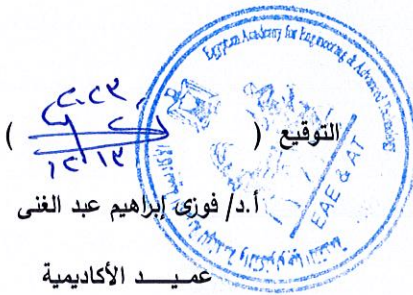 Egyptian Academy for Engineering & Advanced Technology
EAE & AT
التوقيع ( )
أ.د/ فوزى إبراهيم عبد الغنى
عميــد الأكاديمية